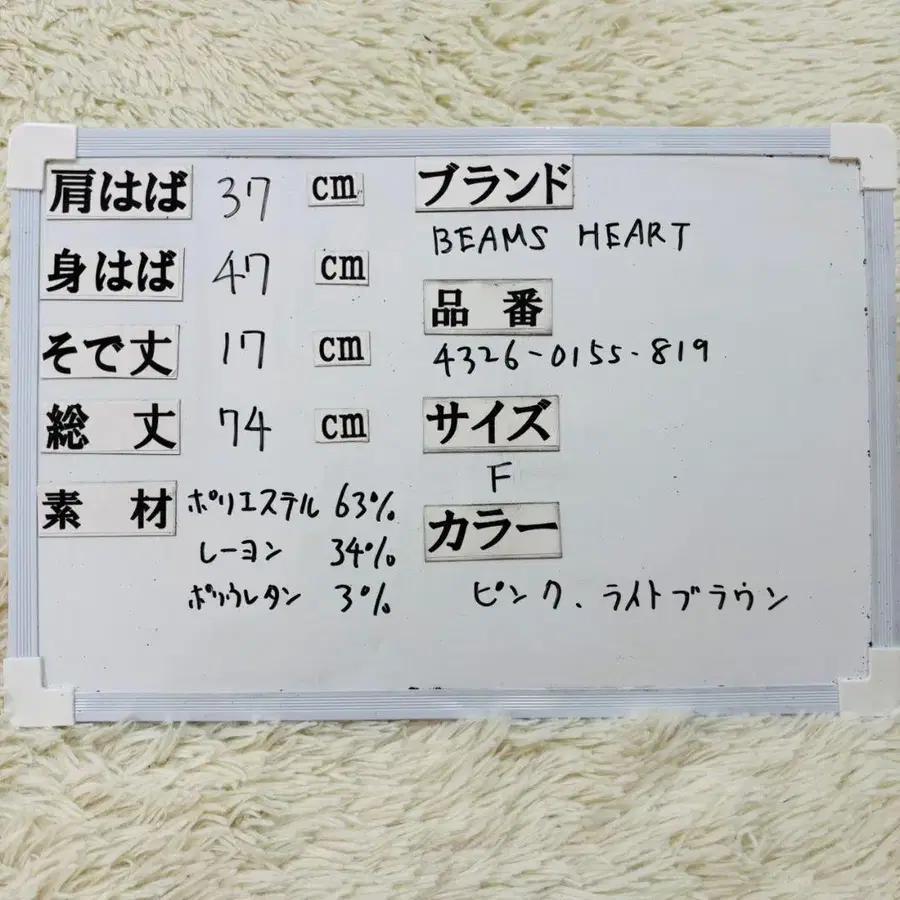 肩はば 37 cm
身はば 47 cm
そで丈 17 cm
総丈 74 cm
素材 ポリエステル 63%
レーヨン 34%
ポリウレタン 3%
ブランド
BEAMS HEART
品番
4326-0155-819
サイズ
F
カラー
ピンク、ライトブラウン